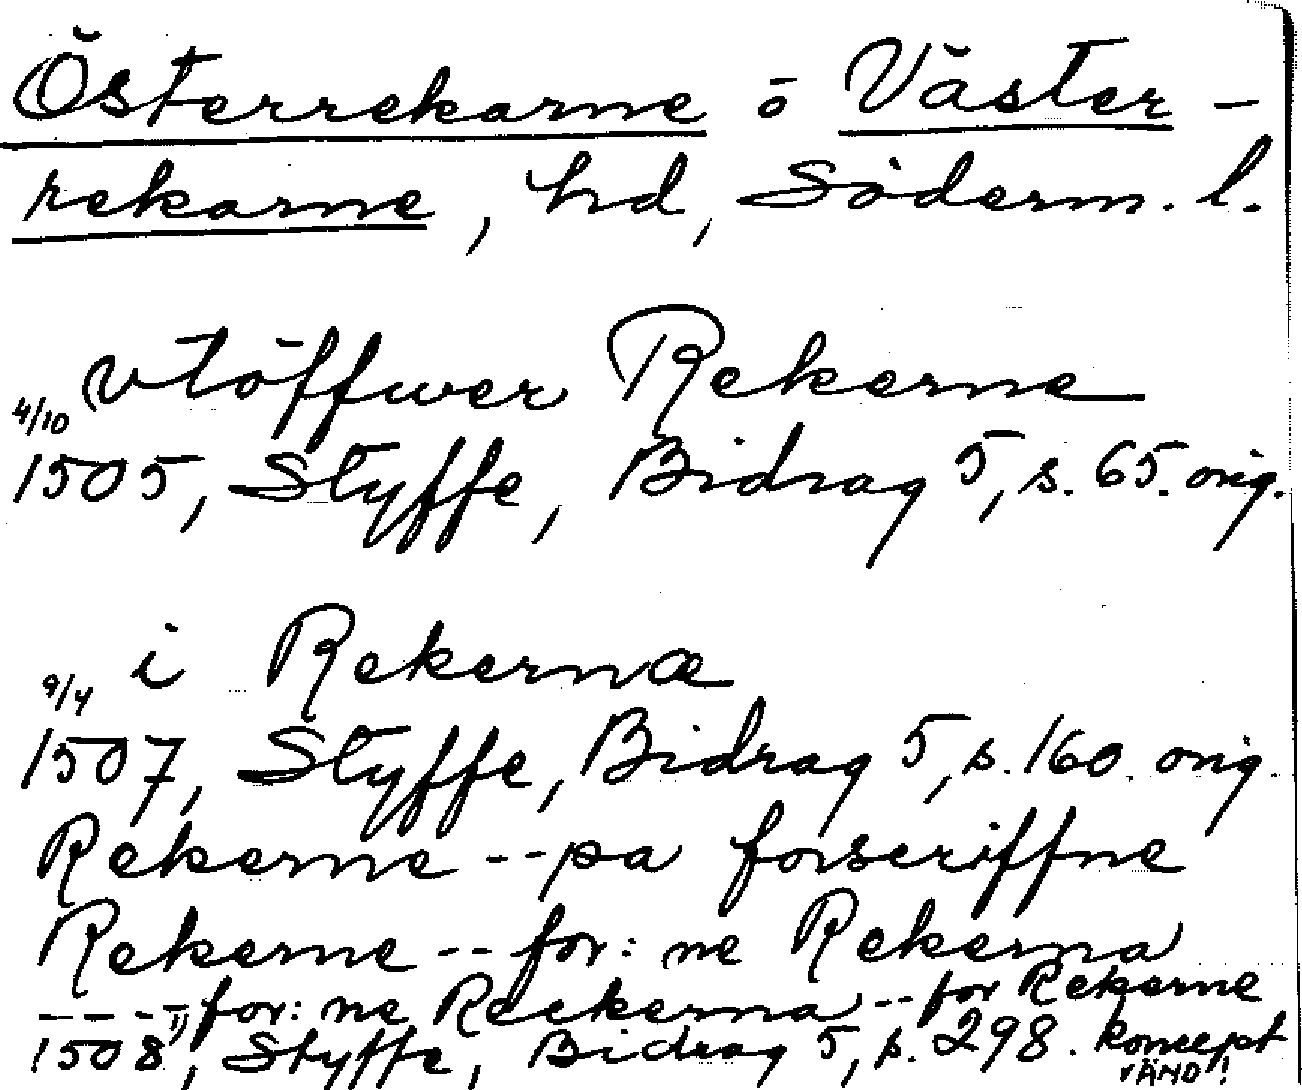 Österrekarne o Väster-
rekarne, hd, Söderm. l.
vtöffwer Rekerne
4/10
1505, Styffe, Bidrag 5, s. 65. orig.
i Rekernæ
9/4
1507, Styffe, Bidrag 5, s. 160. orig.
Rekerne -- pa forscriffne
Rekerne -- for: ne Rekerna
---- for: ne Reekerna -- for Rekerne
1508 1), Styffe, Bidrag 5, s. 298. koncept
VÄND!